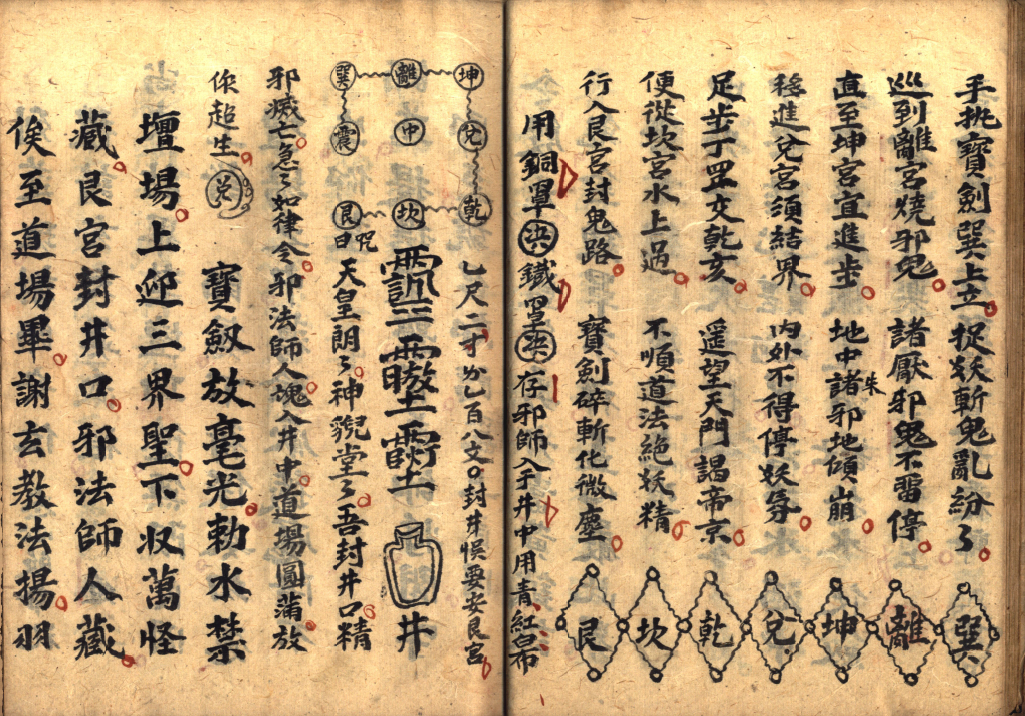 手挑寶劍巽上立 捉妖斬鬼亂紛々 巽
巡到離宮燒邪鬼 諸厭邪鬼不畱停 離
直至坤宮宜進步 地中諸邪地傾崩 坤
誅
移進兌宮須結界 内外不得停妖 兌
足步丁罡交乾亥 遥望天門謁帝京 乾
便從坎宮水上過 不順道法絶妖精 坎
行入艮宮封鬼路 寶劍碎斬化微塵 艮
用銅罩決鐵罩決存邪師入于井中用青紅皂布
七尺二寸 百八文封井悮要安艮宮
坤 兌 乾
離 中 坎
巽 震 艮
井
咒曰天皇朗々神 堂々吾封井口精
邪滅亡急々如律令邪法師人魂入井中道場圓滿放
你超生
寶劔放毫光勅水禁
壇場上迎三界聖下收萬怪
藏艮宮封井口邪法師人藏
俟至道場畢謝玄教法揚羽